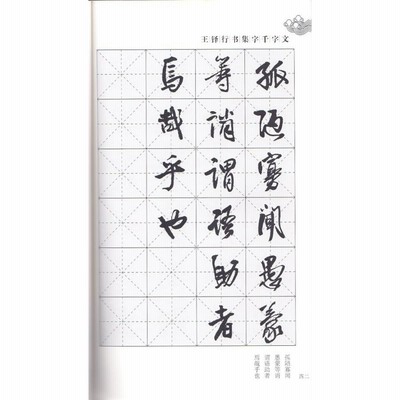 王铎行书集字千字文
孤陋寡闻愚蒙
等诮谓语助者
焉哉乎也
孤陋寡闻
愚蒙等诮
谓语助者
焉哉乎也
四二